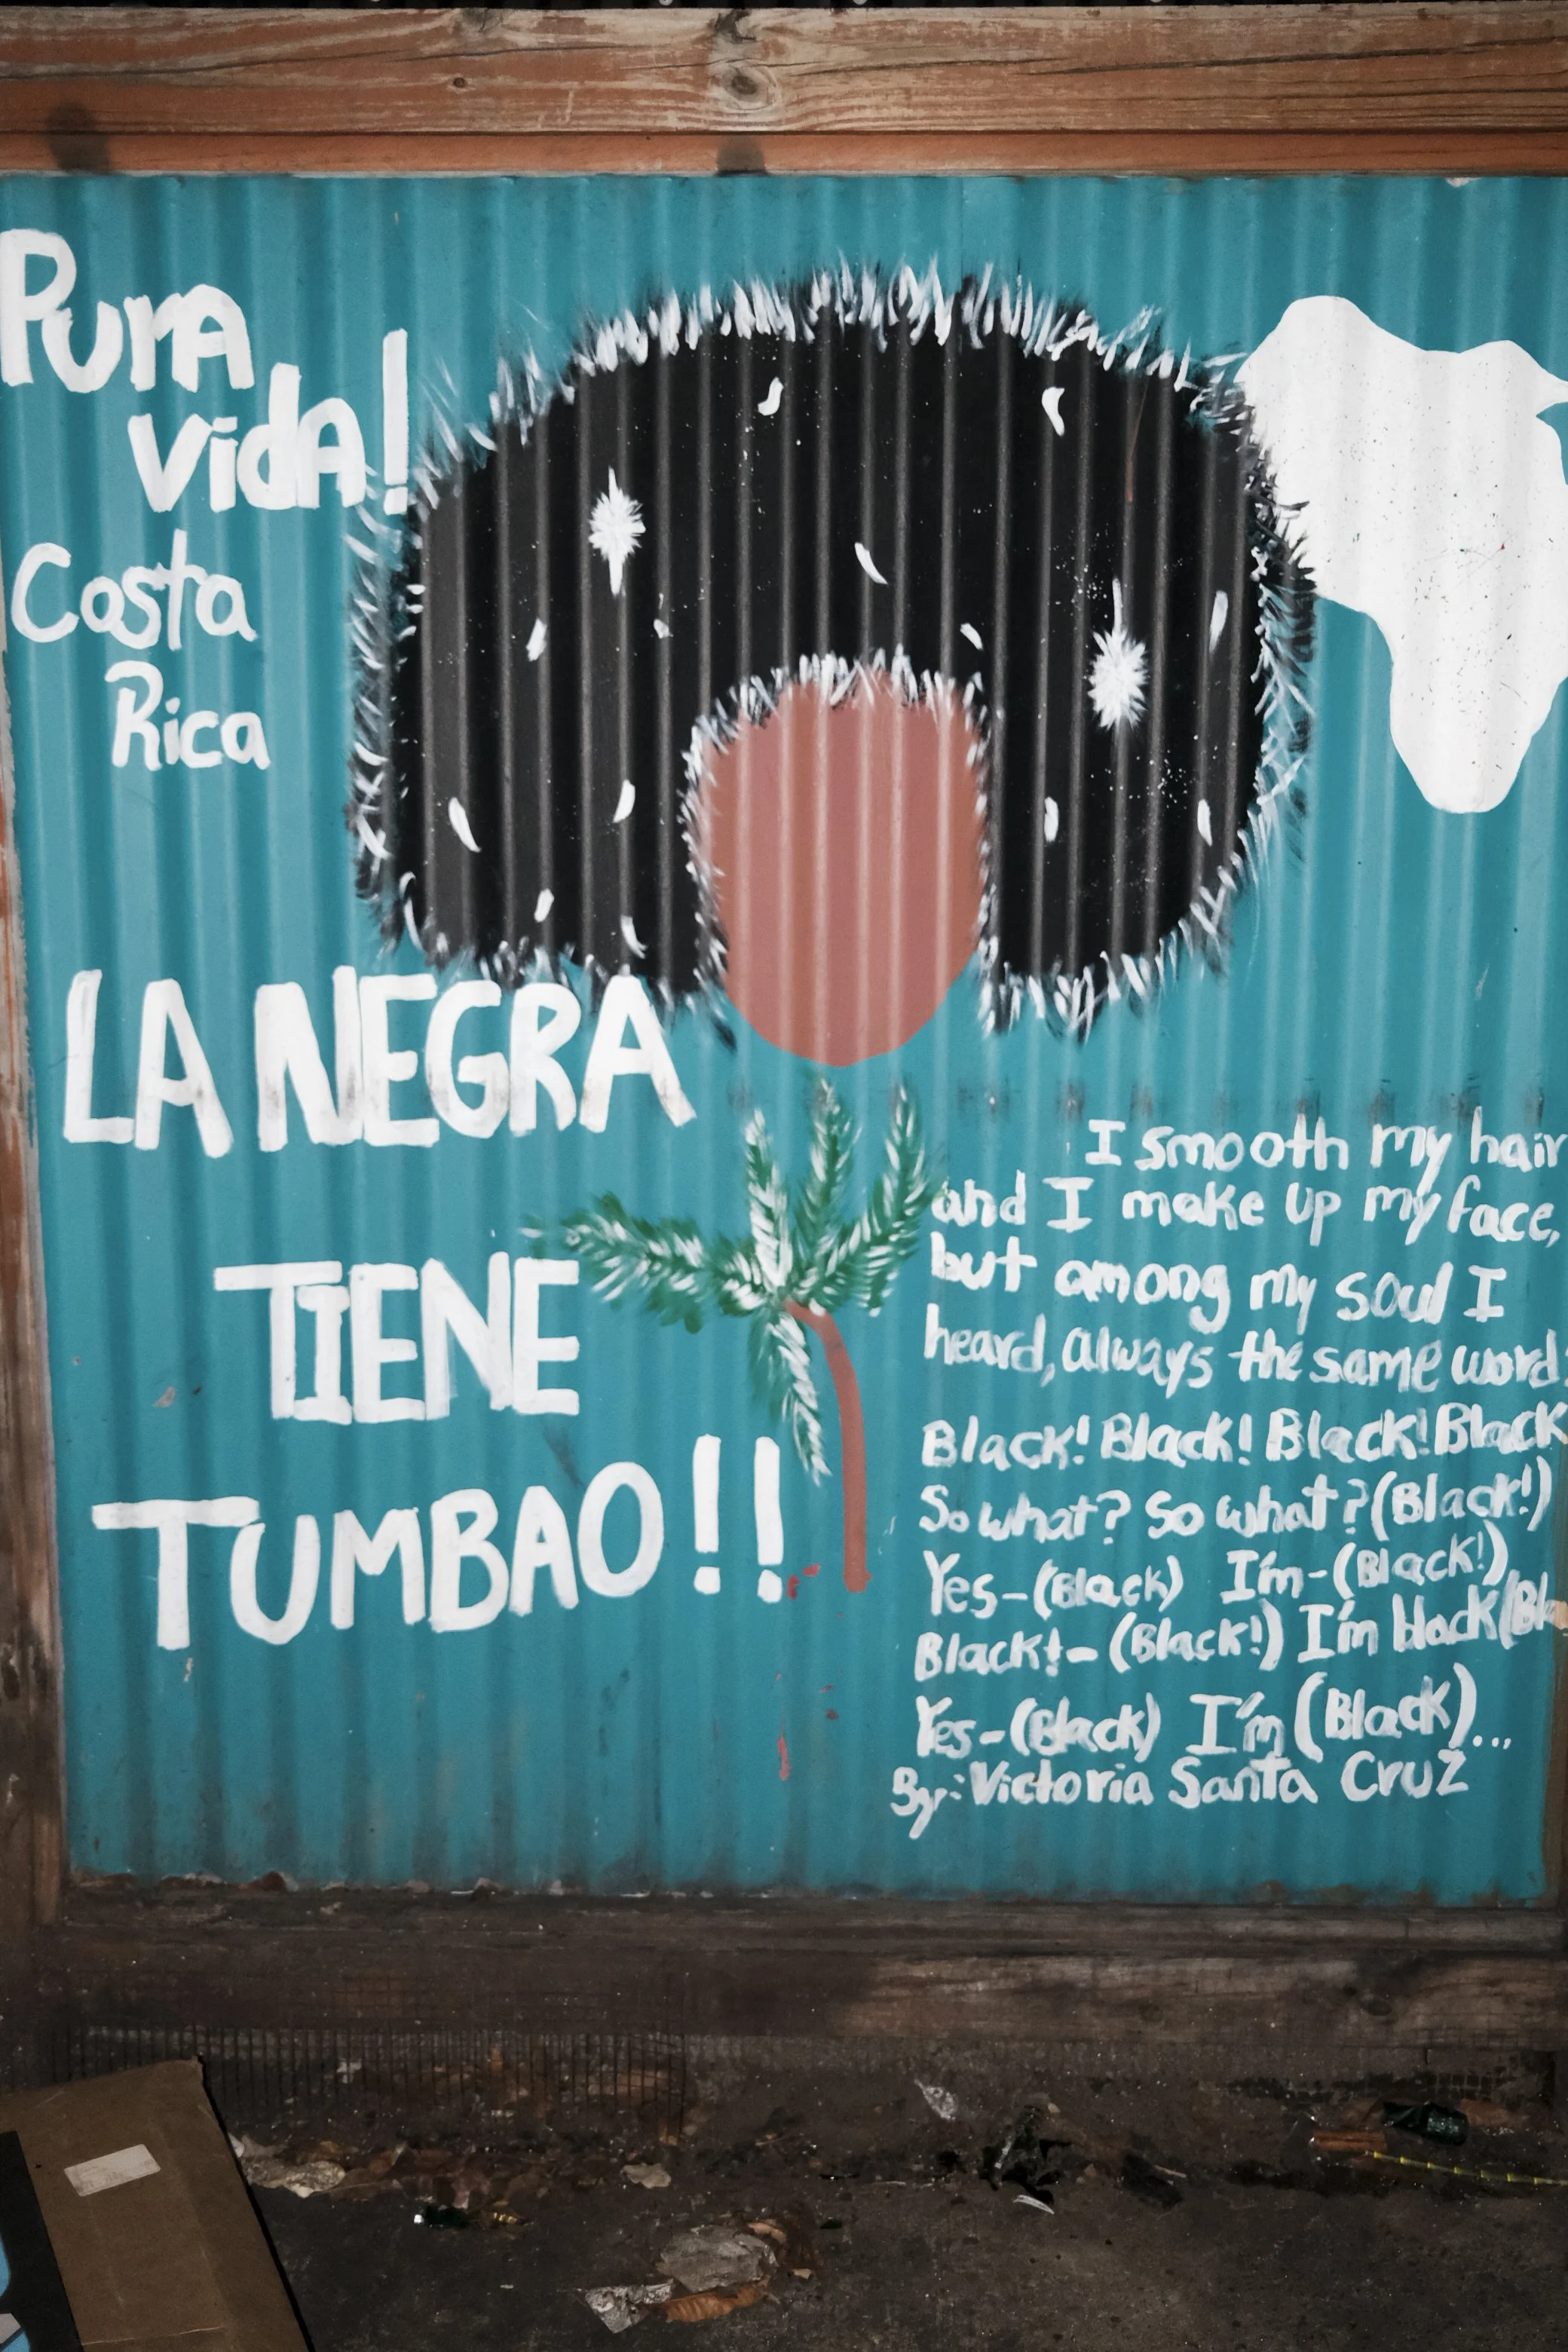 Pura
vida!
Costa
Rica
LA NEGRA
TIENE
TUMBAO!!
I smooth my hair
and I make up my face,
but among my soul I
heard, always the same word:
Black! Black! Black! Black
So what? So what? (Black!)
Yes-(Black) I'm-(Black!)
Black!-(Black!) I'm black
Yes-(Black) I'm (Black)...
By: Victoria Santa Cruz